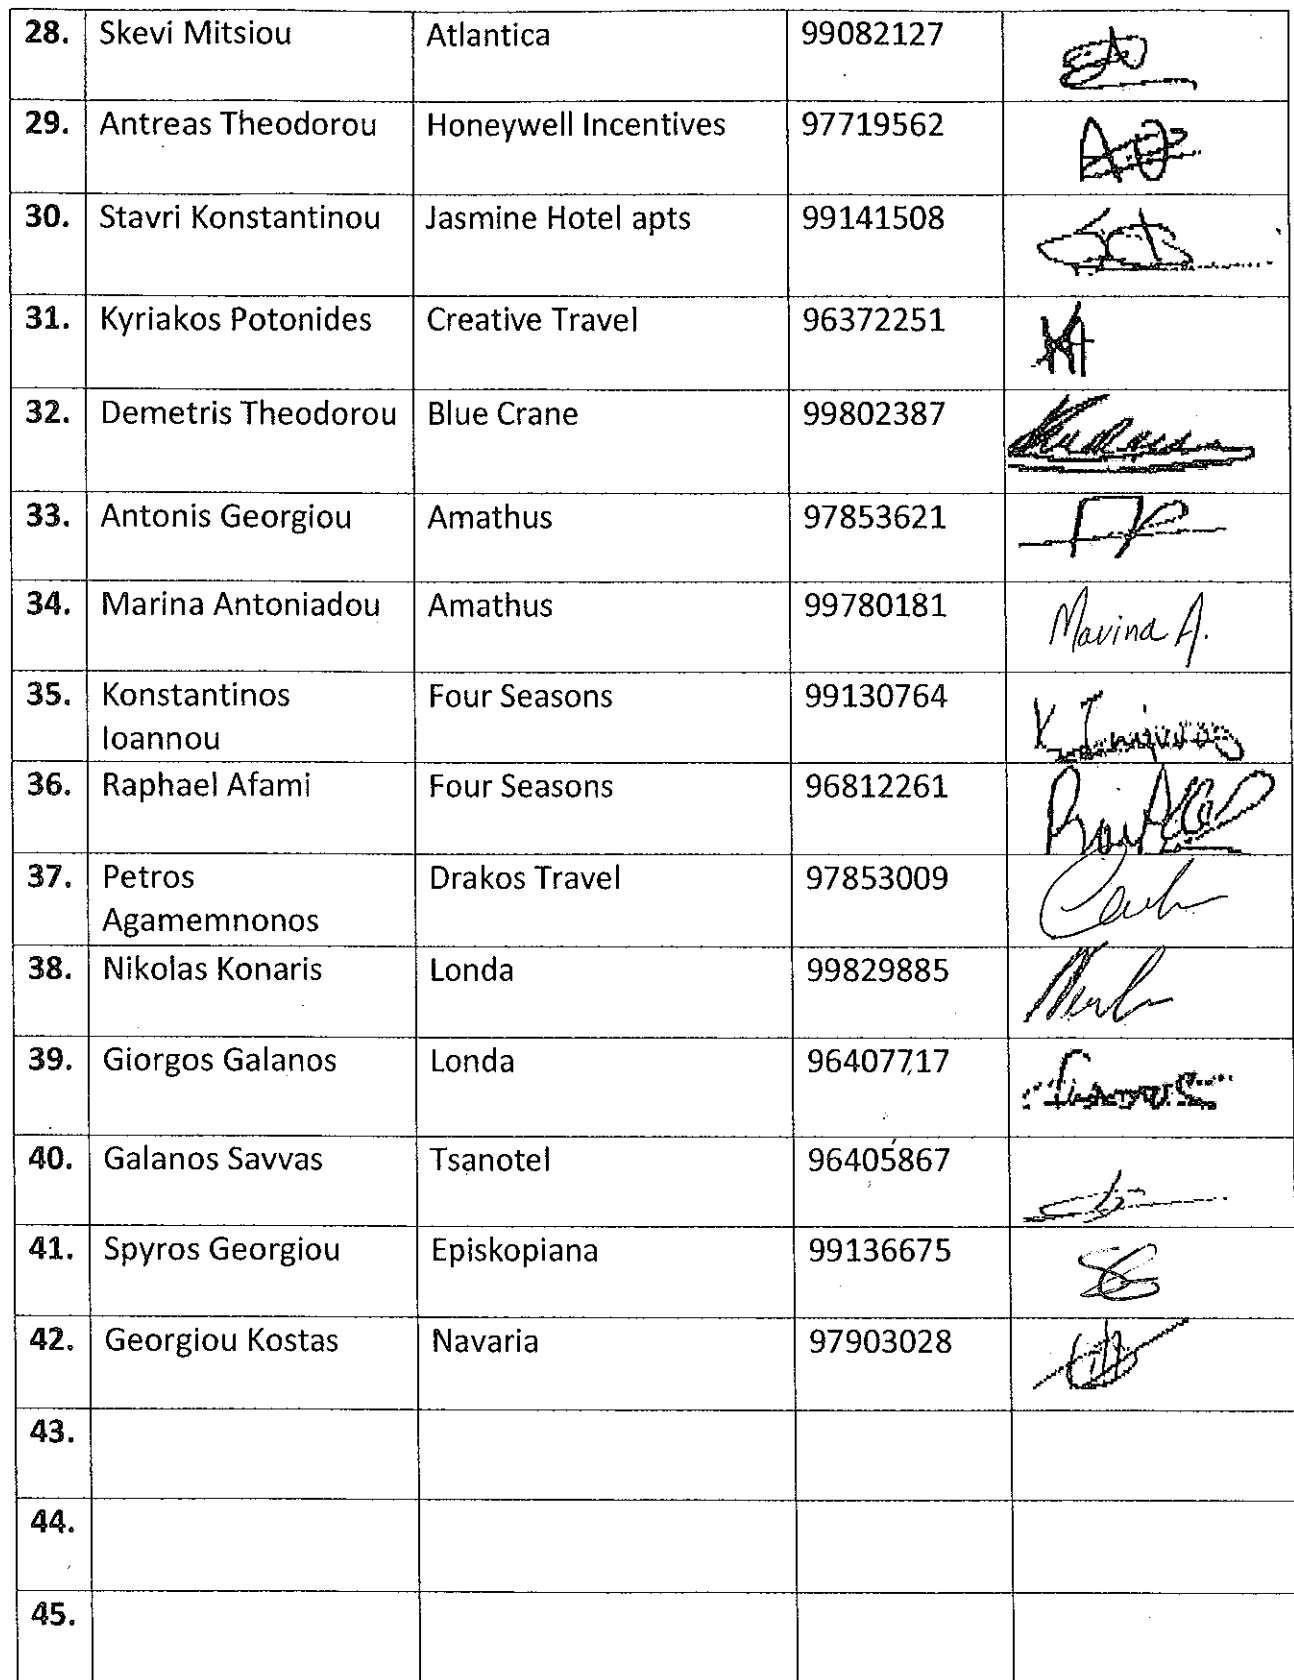 28. Skevi Mitsiou Atlantica 99082127
29. Antreas Theodorou Honeywell Incentives 97719562
30. Stavri Konstantinou Jasmine Hotel apts 99141508
31. Kyriakos Potonides Creative Travel 96372251
32. Demetris Theodorou Blue Crane 99802387
33. Antonis Georgiou Amathus 97853621
34. Marina Antoniadou Amathus 99780181 Marina A.
35. Konstantinos Four Seasons 99130764
Ioannou
36. Raphael Afami Four Seasons 96812261
37. Petros Drakos Travel 97853009
Agamemnonos
38. Nikolas Konaris Londa 99829885
39. Giorgos Galanos Londa 96407717
40. Galanos Savvas Tsanotel 96405867
41. Spyros Georgiou Episkopiana 99136675
42. Georgiou Kostas Navaria 97903028
43.
44.
45.